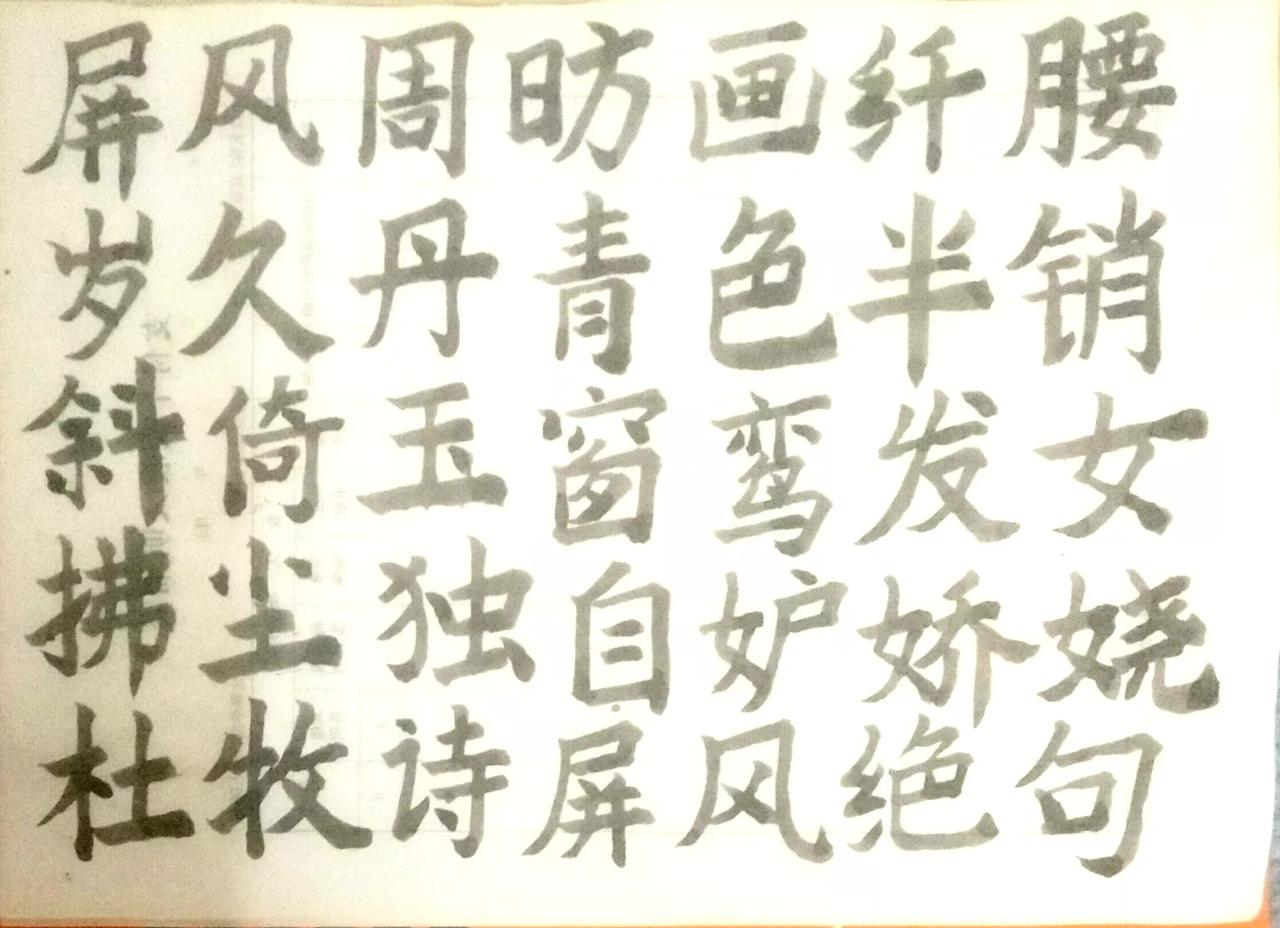 屏风周昉画纤腰
岁久丹青色半销
斜倚玉窗鸾发女
拂尘独自妒娇娆
杜牧诗屏风绝句